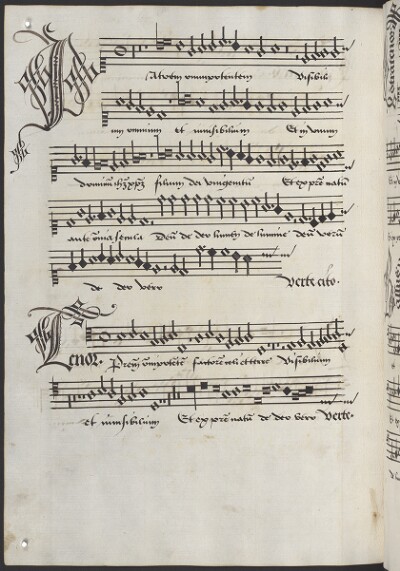 Patrem omnipotentem Visibili
um omnium et invisibilium Et in unum
dominum filium dei unigenitu Et ex pre natu
ante oia secula Deu de deo lumen de lumine deu veru
de deo vero Verte cito.
Tenor. Prem omipotete factore celi et terre Visibilium
Et invisibilium Et ex pre natu de deo vero Verte.